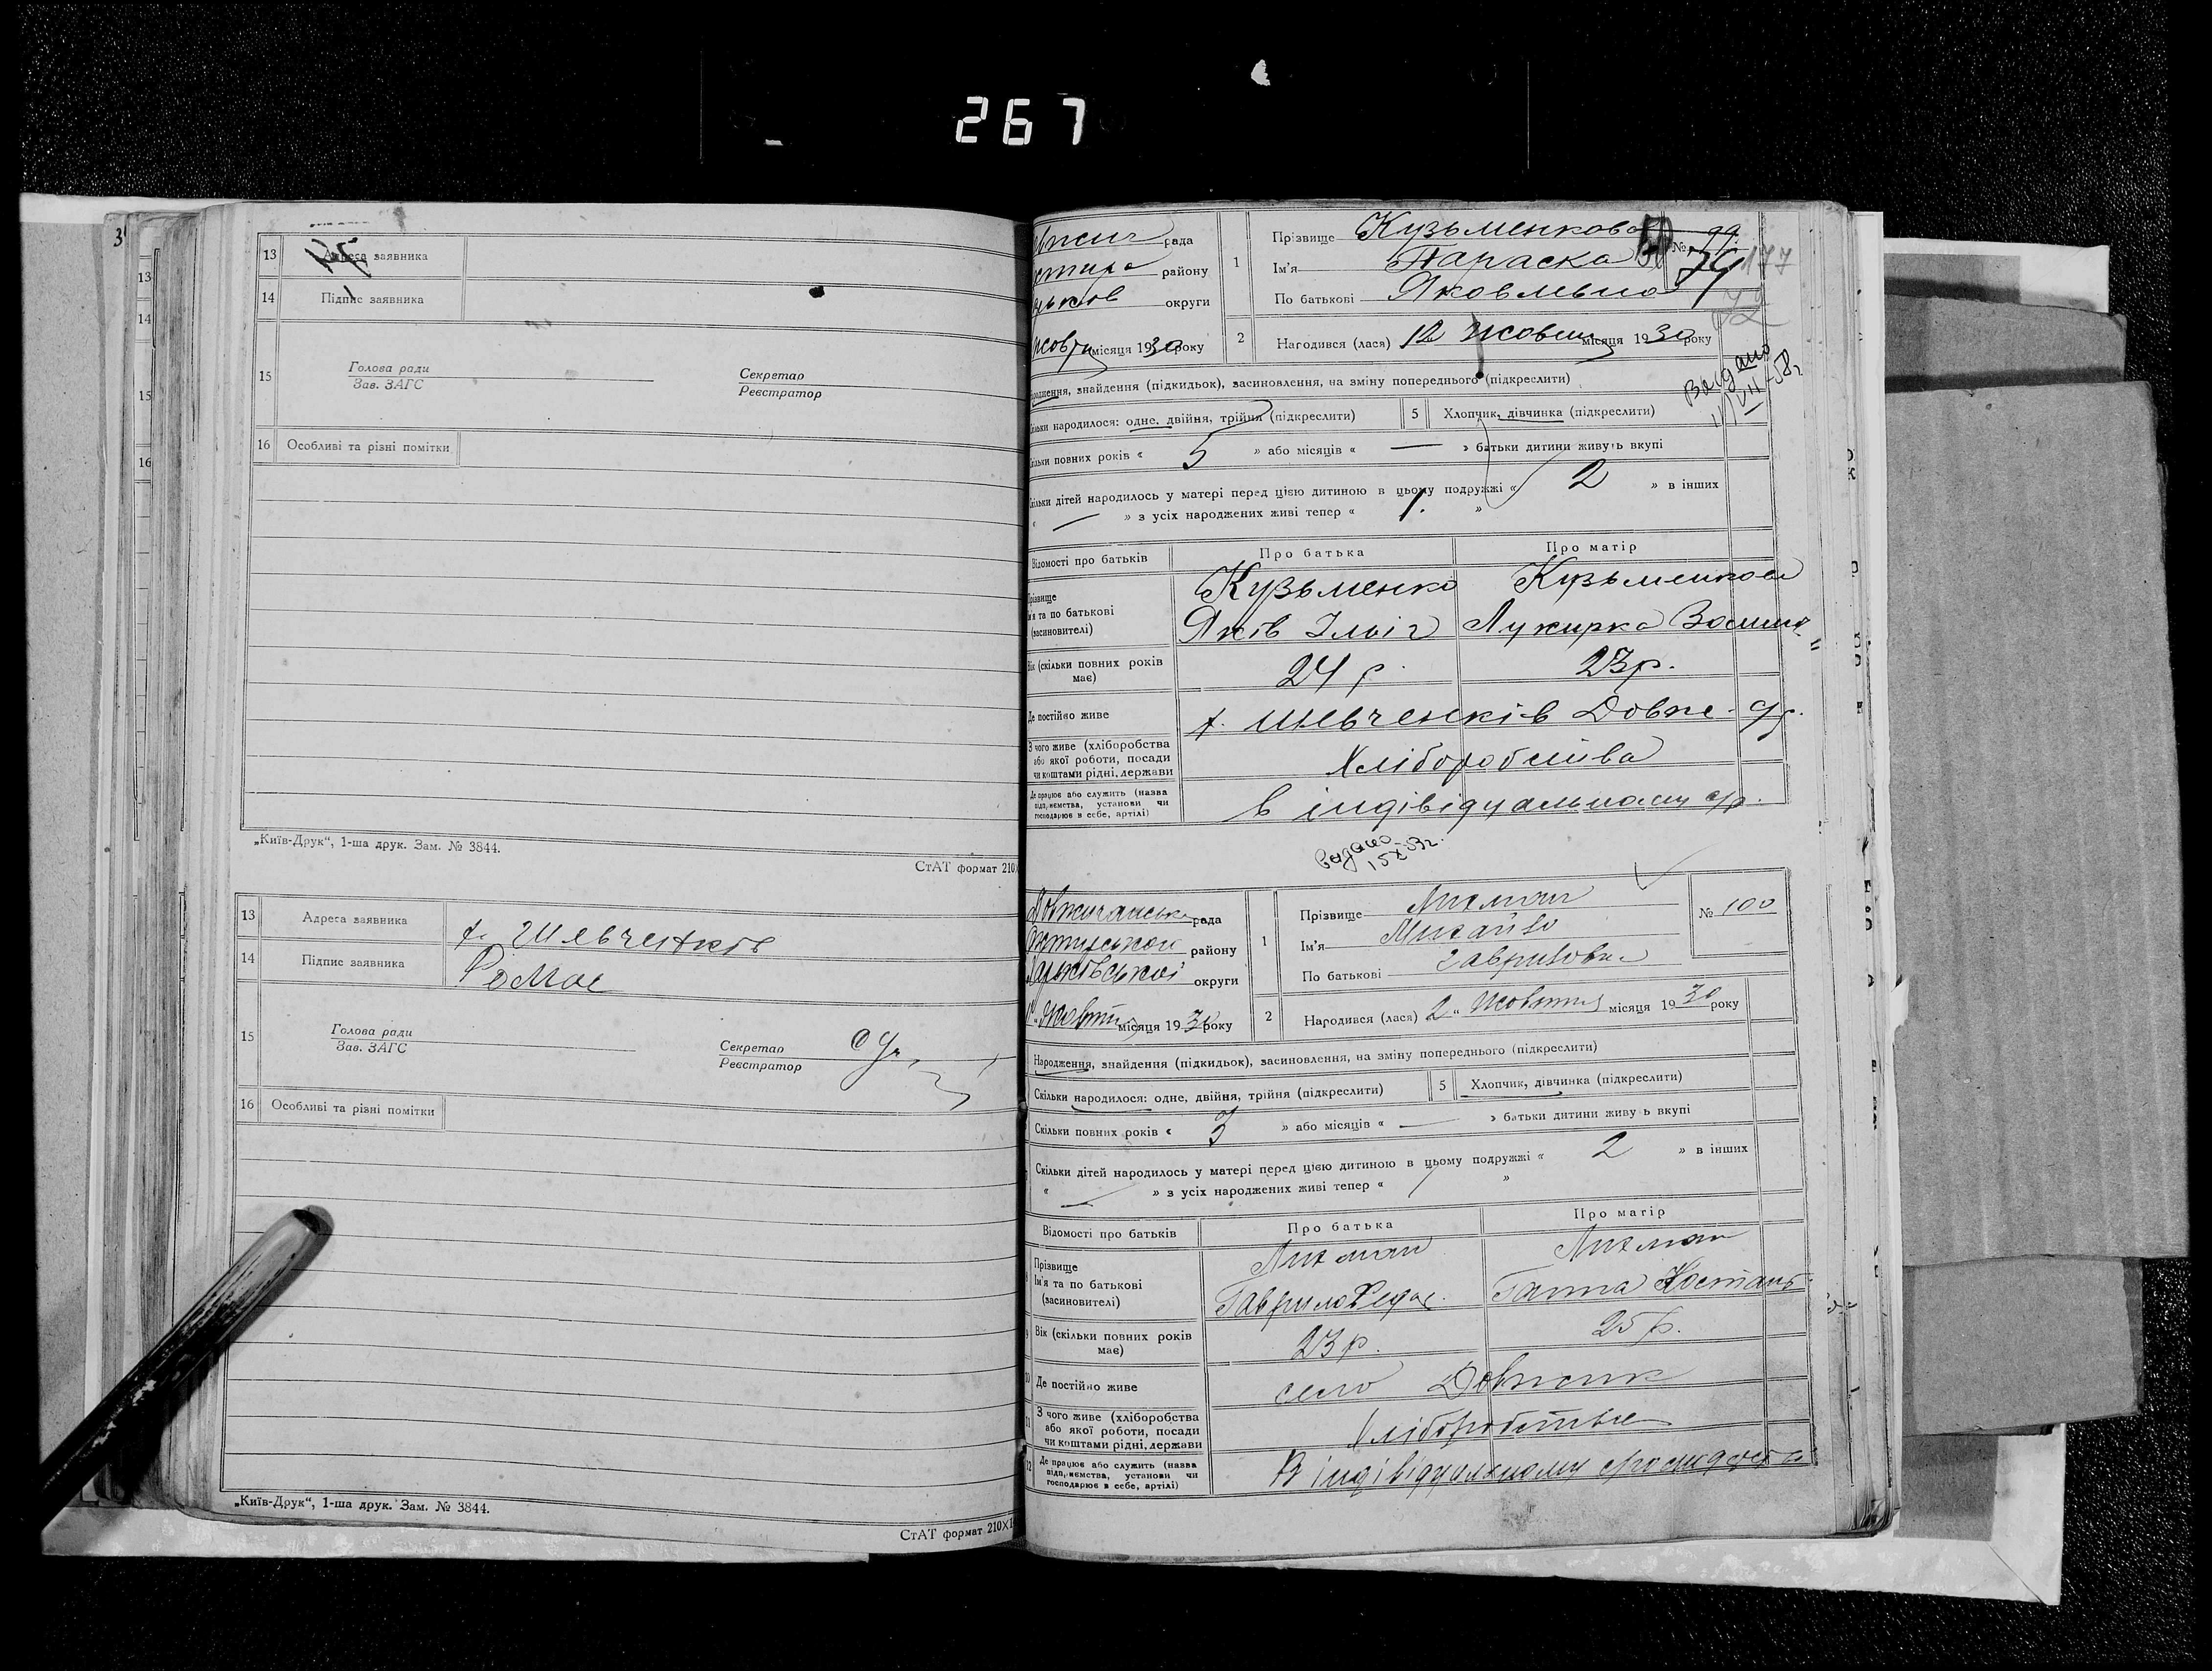 267
13 Адреса заявника
14 Підпис заявника
15 Голова ради
Зав. ЗАГС
Секретар
Реєстратор
16 Особливі та різні помітки
„Київ-Друк“, 1-ша друк. Зам. № 3844.
СтАТ формат 210
13 Адреса заявника х. Шевченків
14 Підпис заявника
15 Голова ради
Зав. ЗАГС
Секретар
Реєстратор
16 Особливі та різні помітки
„Київ-Друк“, 1-ша друк. Зам. № 3844.
СтАТ формат 210X1
рада
району
округи
місяця 1930 року
1 Прізвище Кузьменкова
Ім'я Параска
По батькові Яковльна
№ 99
79
177
2 Народився (лася) 12 жовтня місяця 1930 року
Видано
народження, знайдення (підкидьок), засиновлення, на зміну попереднього (підкреслити)
Скільки народилося: одне, двійня, трійня (підкреслити) 5 Хлопчик, дівчинка (підкреслити)
Скільки повних років « 5 » або місяців « — » батьки дитини живуть вкупі
Скільки дітей народилось у матері перед цією дитиною в цьому подружжі « 2 » в інших
« — » з усіх народжених живі тепер « 1. »
Відомості про батьків Про батька Про матір
Прізвище
Ім'я та по батькові
(засиновителі)
Кузьменко Кузьменкова
Яків Ілліч Лукирка
Вік (скільки повних років має) 24 р. 23 р.
Де постійно живе х. Шевченків Довж.
З чого живе (хліборобства
або якої роботи, посади
чи коштами рідні, держави
Хліборобства
Де працює або служить (назва
підприємства, установи чи
господарює в себе, артілі)
в індівідуальному
Видано
15/X-53 г.
рада
району
Харьківської округи
Жовтня місяця 1930 року
1 Прізвище Лихман
Ім'я Михайло
По батькові Гаврилович
№ 100
2 Народився (лася) 2 „ Жовтня місяця 1930 року
Народження, знайдення (підкидьок), засиновлення, на зміну попереднього (підкреслити)
Скільки народилося: одне, двійня, трійня (підкреслити) 5 Хлопчик, дівчинка (підкреслити)
Скільки повних років « 3 » або місяців « — » батьки дитини живуь вкупі
Скільки дітей народилось у матері перед цією дитиною в цьому подружжі « 2 » в інших
« — » з усіх народжених живі тепер « 1 »
Відомості про батьків Про батька Про матір
Прізвище
Ім'я та по батькові
(засиновителі)
Лихман Лихман
Гаврило Федос. Ганна Костант.
9 Вік (скільки повних років має) 23 р. 25 р.
10 Де постійно живе село Довжик
11 З чого живе (хліборобства
або якої роботи, посади
чи коштами рідні, держави
Хліборобства
12 Де працює або служить (назва
підприємства, установи чи
господарює в себе, артілі)
В індівідуальному